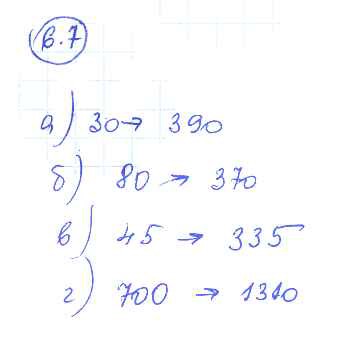 в.7
а) 30→ 390
б) 80 → 370
в) 45 → 335
г) 700 → 1310